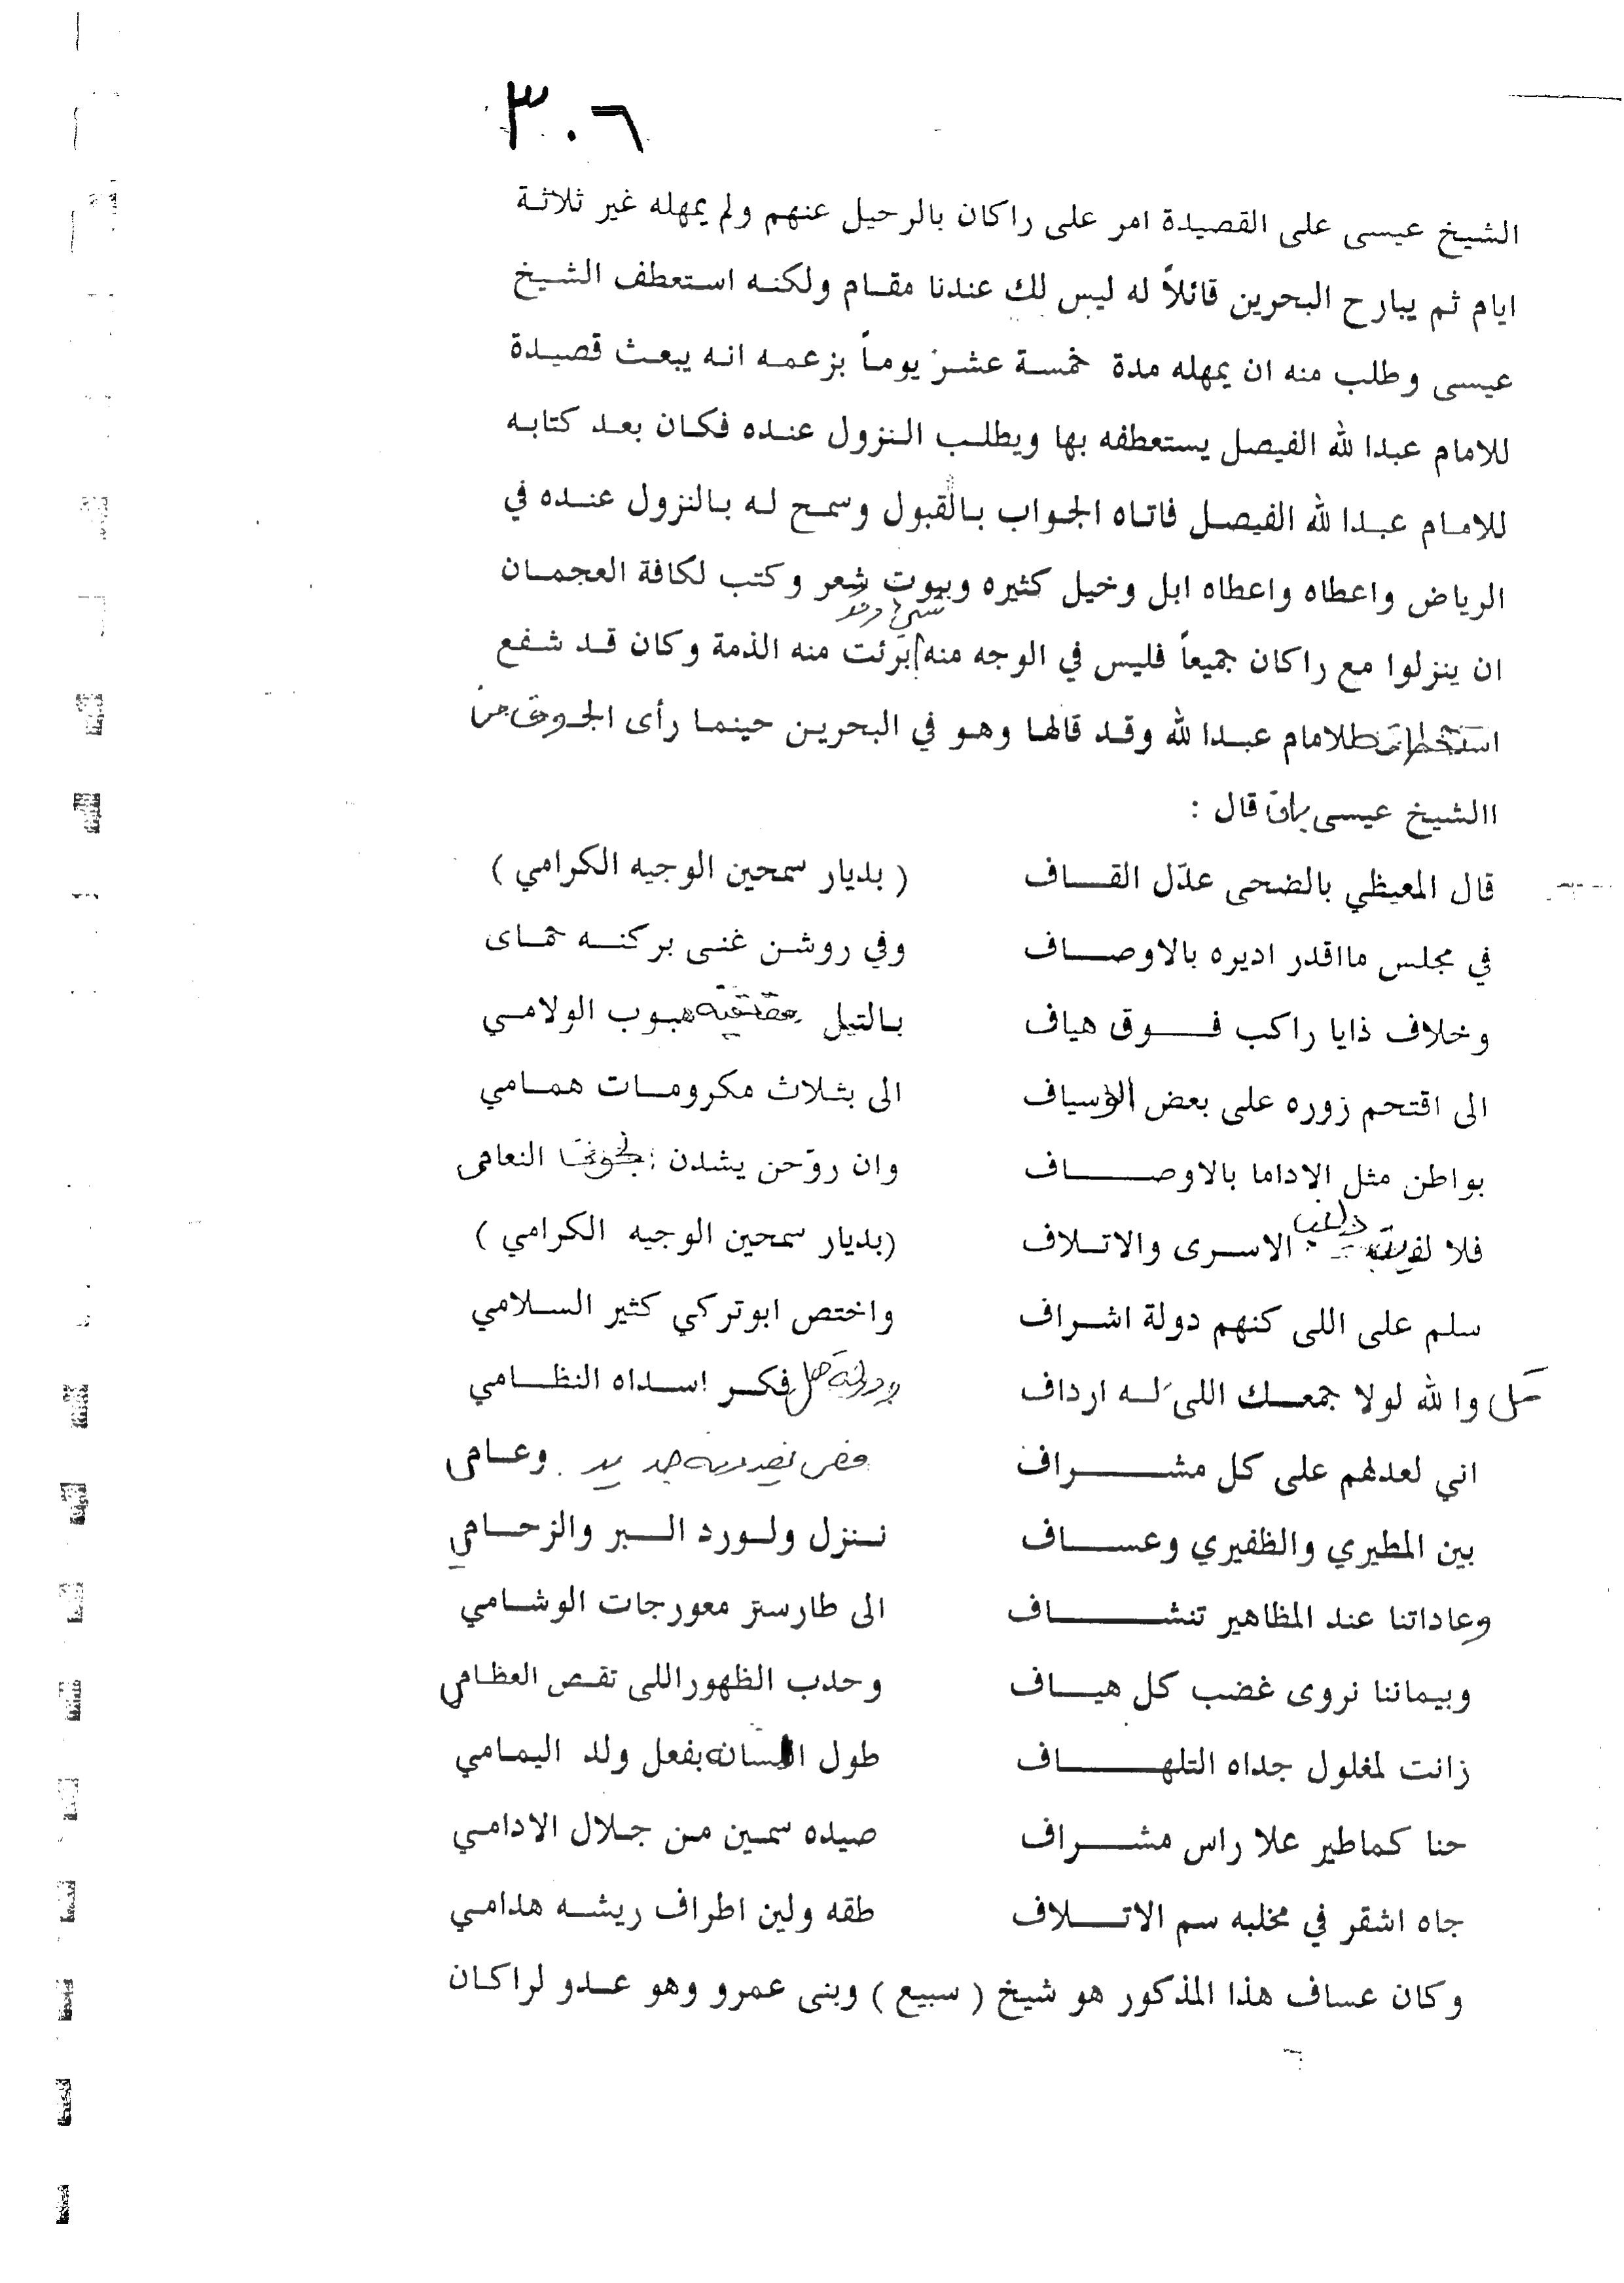 ٣٠٦
الشيخ عيسى على القصيدة امر على راكان بالرحيل عنهم ولم يمهله غير ثلاثة
ايام ثم يبارح البحرين قائلاً له ليس لك عندنا مقام ولكنه استعطف الشيخ
عيسى وطلب منه ان يمهله مدة خمسة عشر يوماً بزعمه انه يبعث قصيدة
للامام عبدا لله الفيصل يستعطفه بها ويطلب النزول عنده فكان بعد كتابه
للامام عبدا لله الفيصل فاتاه الجواب بالقبول وسمح له بالنزول عنده في
الرياض واعطاه واعطاه ابل وخيل كثيره وبيوت شعر وكتب لكافة العجمان
ان ينزلوا مع راكان جميعاً فليس في الوجه منه برئت منه الذمة وكان قد شفع
للامام عبدا لله وقد قالها وهو في البحرين حينما رأى من
االشيخ عيسى بان قال :
قال المعيظي بالضحى عدّل القاف ( بديار سمحين الوجيه الكرامي )
في مجلس مااقدر اديره بالاوصاف وفي روشن غنى بركنه حماى
وخلاف ذايا راكب فوق هياف بالتيل هبوب الولامي
الى اقتحم زوره على بعض الاسياف الى بثلاث مكرومات همامي
بواطن مثل الاداما بالاوصاف وان روّحن يشدن النعامى
فلا الاسرى والاتلاف (بديار سمحين الوجيه الكرامي )
سلم على اللى كنهم دولة اشراف واختص ابوتركي كثير السلامي
وا لله لولا جمعك اللى له ارداف فكر اسداه النظامي
اني لعدلهم على كل مشراف وعامى
بين المطيري والظفيري وعساف ننزل ولورد البر والزحامي
وعاداتنا عند المظاهير تنشاف الى طارستر معورجات الوشامي
وبيماننا نروى غضب كل هياف وحدب الظهوراللى تقص العظامي
زانت لمغلول جداه التلهاف طول السانه بفعل ولد اليمامي
حنا كماطير علا راس مشراف صيده سمين من جلال الادامي
جاه اشقر في مخلبه سم الاتلاف طقه ولين اطراف ريشه هدامي
وكان عساف هذا المذكور هو شيخ ( سبيع ) وبنى عمرو وهو عدو لراكان